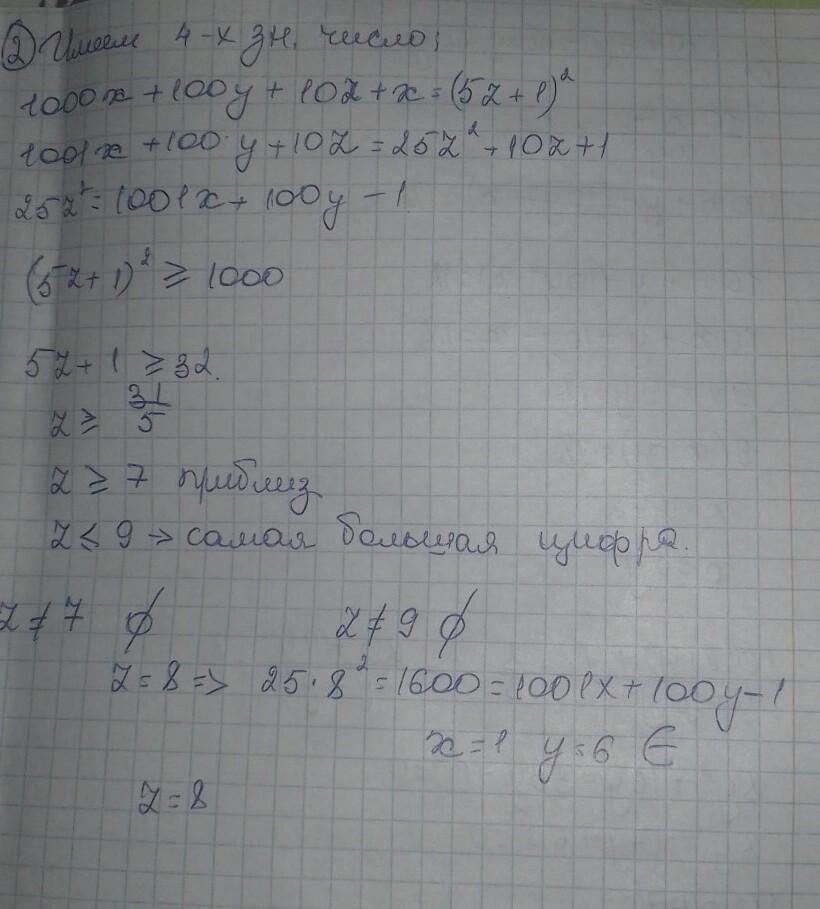 ② Имеем 4-х зн. число;
1000x + 100y + 10z + x = (5z + 1)²
1001x + 100·y + 10z = 25z² + 10z + 1
25z² = 1001x + 100y - 1
(5z + 1)² ≥ 1000
5z + 1 ≥ 32.
z ≥ 31/5
z ≥ 7 приблиз
z ≤ 9 → самая большая цифра.
z ≠ 7 ∅ z ≠ 9 ∅
z = 8 => 25·8² = 1600 = 1001x + 100y - 1
x = 1 y = 6 ∈
z = 8